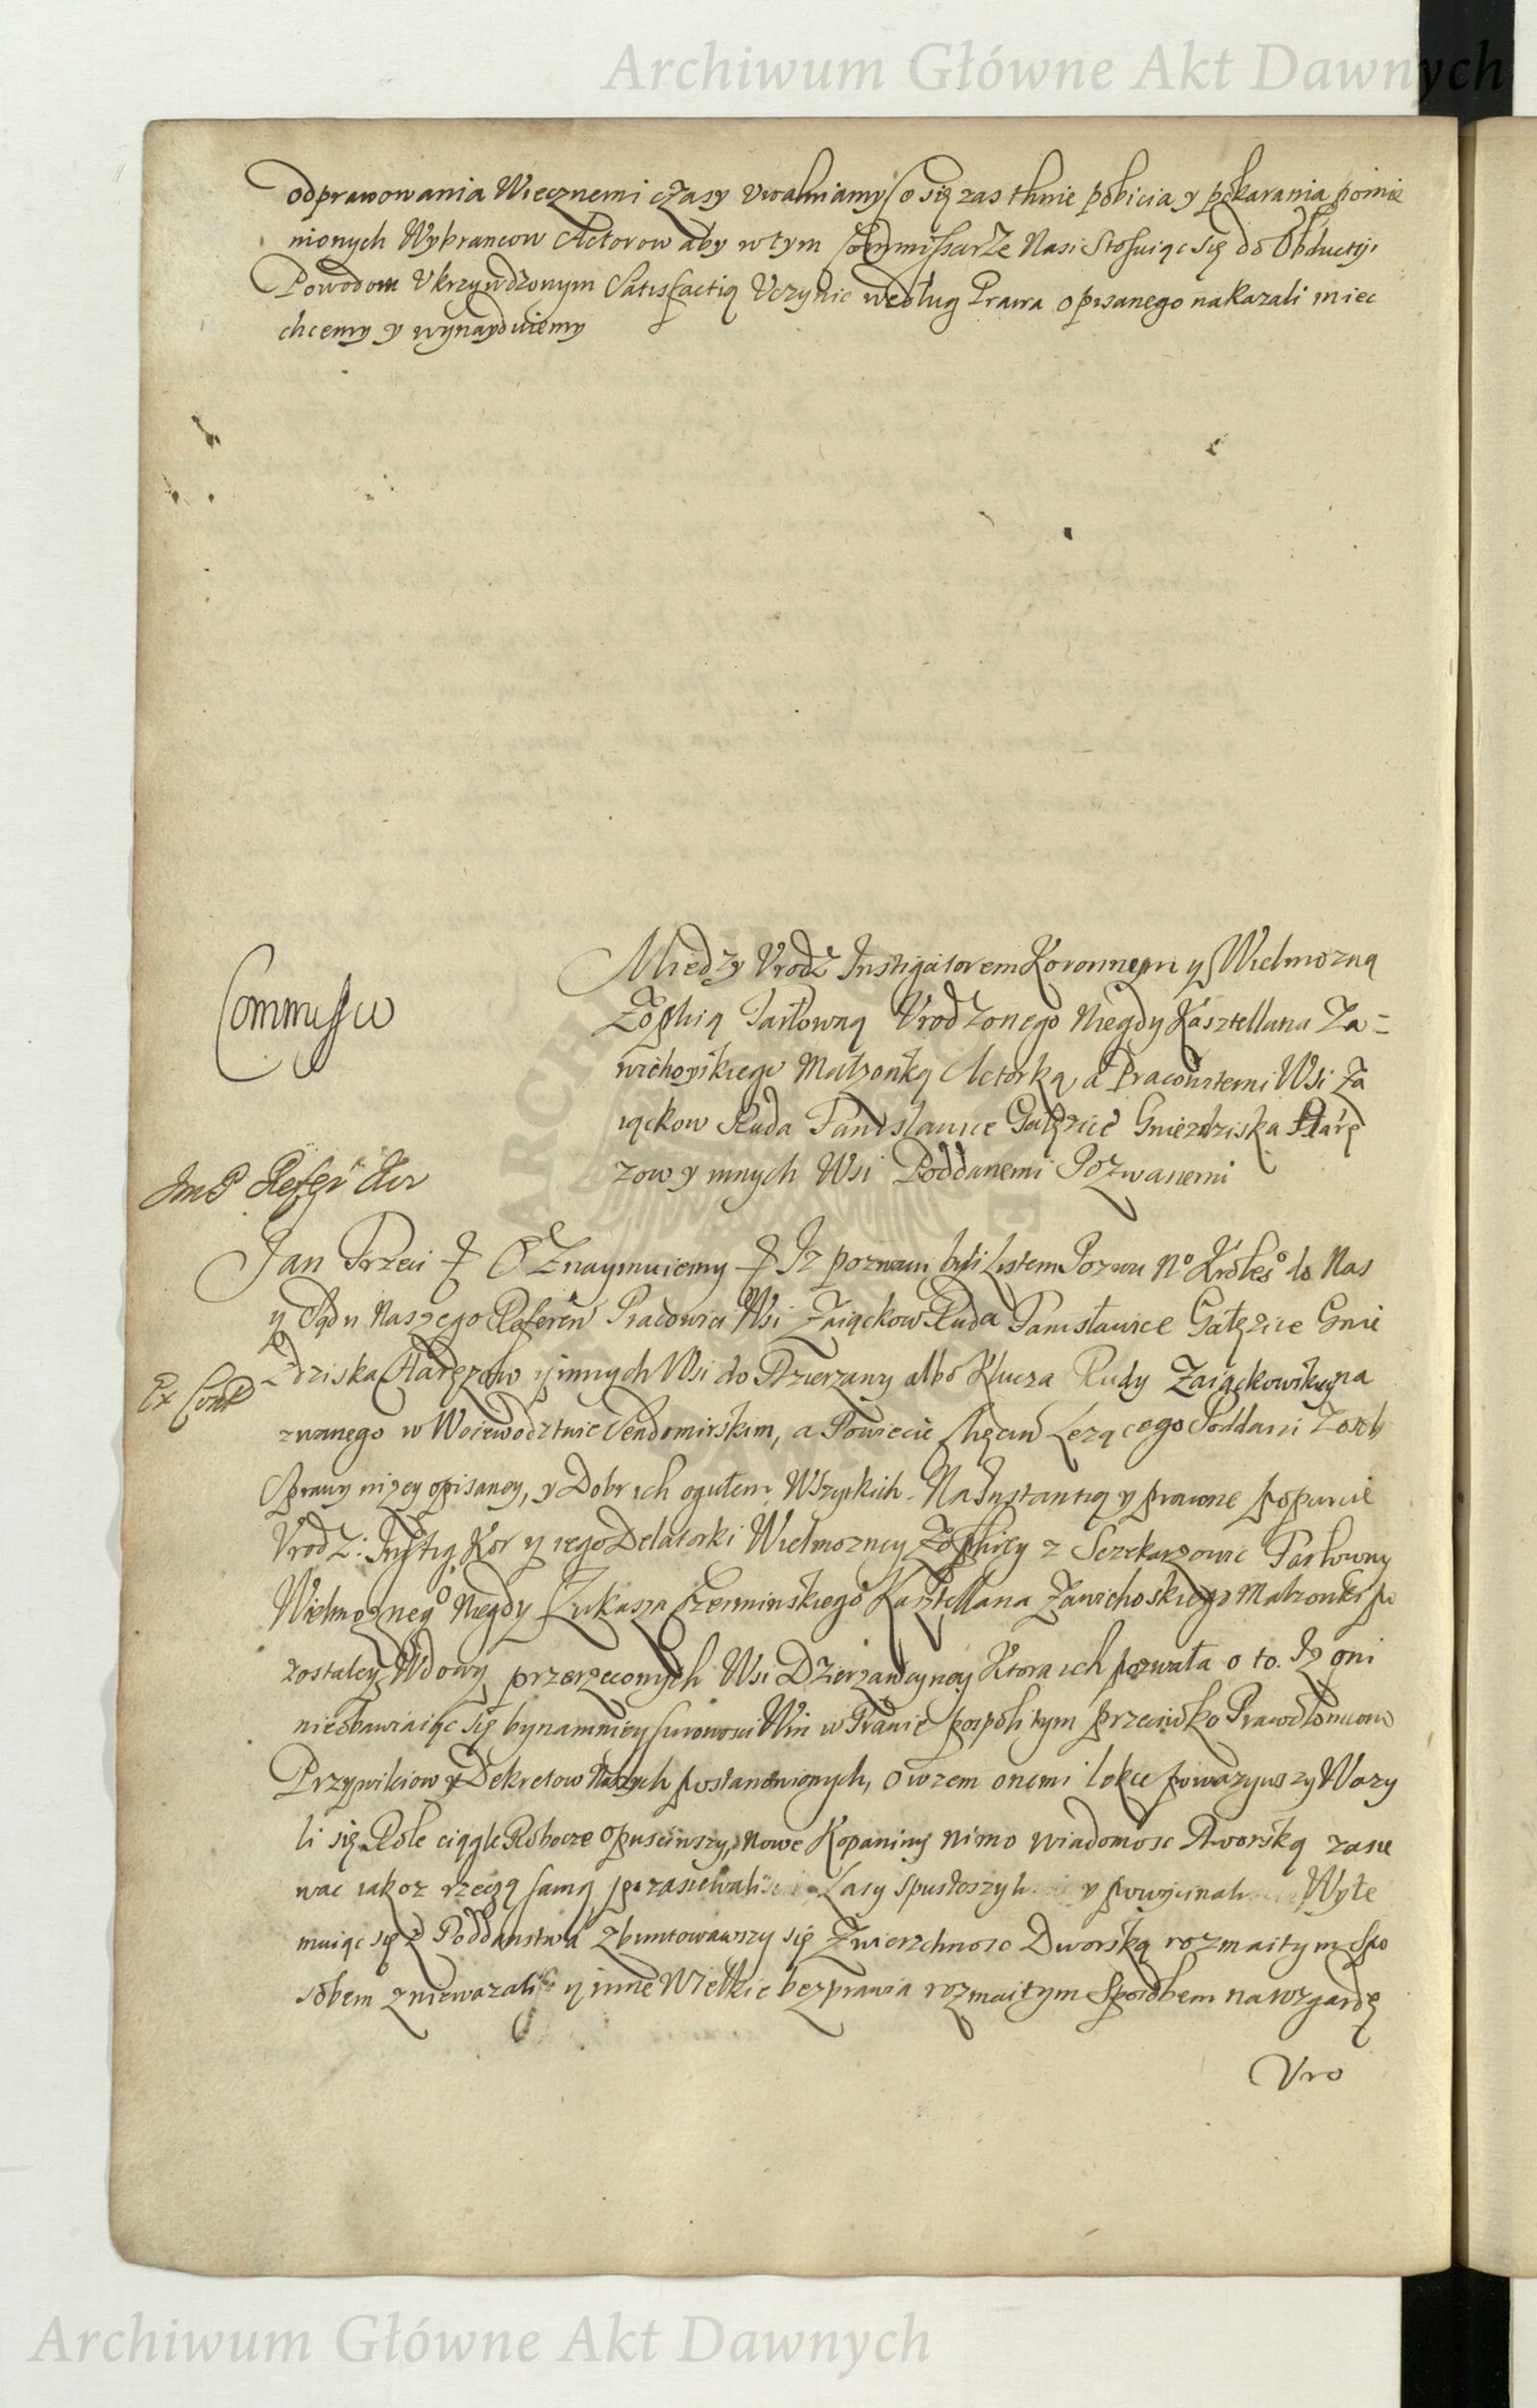 Archiwum Główne Akt Dawnych
odprawowania Wiecznemi czasy Uwalniamy Co się zas tknie pobicia y pokarania pomie
nionych Wybrancow Actorow aby w tym Commissarze Nasi Stosuiąc się do Obductÿ
Powodom Ukrzywdzonym Satisfactią Uczynic według Prawa opisanego nakazali miec
chcemy y wynayduiemy
Commissio
Między Urodz Instigatorem Koronnym y Wielmozną
Zophią Tarłowną Urodzonego Niegdy Kasztellana Za=
wichoyskiego Małzonką Actorką, a Pracowitemi Wsi Za
iąckow Ruda Fanisławice Gałęzice Gniezdziska Htarę
zow y innych Wsi Poddanemi Pozwanemi
Im P Refer Kor
Jan Trzeci Oznaymuiemy Iz pozwani byli Listem Pozwu No Krolego do Nas
y Sądu Naszego Referen Pracowici Wsi Zaiąckow Ruda Fanisławice Gałęzice Gnie
zdziska Htaręzow y innych Wsi do Dzierzawy albo Klucza Rudy Zaiąckowskiey na
Ex Cont
zwanego w Woiewodztwie Sendomirskim, a Powiecie Chęcin Lezącego Poddani z osob
Sprawy nizey opisaney, y Dobr ich ogułem Wszystkich. Na Instantią y prawne poparcie
Urodz: Instig Kor y iego Delatorki Wielmozney Zophiey z Sczekarzowic Tarłowny
Wielmoznego Niegdy Łukasza Czerminskiego Kasztellana Zawichoskiego Małzonki po
zostałey Wdowy przerzeconych Wsi Dzierzawcyney Ktora ich pozwała o to. Iz oni
nieobawiaiąc się bynamniey surowosci Win w Prawie pospolitym przeciwko Prawołomcom
Przywileiow y Dekretow Naszych postanowionych, owszem onemi lekce powazywszy Wazy
li się Role ciągle Robocze opusciwszy, nowe Kopaniny mimo wiadomosc Dworską zasie
wac iakoz rzeczą samą pozasiewali Lasy spustoszyli y powycinali Wyłe
muiąc się z Poddanstwa zbuntowawszy się Zwierzchnosc Dworską rozmaitym Spo
sobem zniewazali y inne Wielkie bezprawia rozmaitym Sposobem na wzgardę
Uro
Archiwum Główne Akt Dawnych